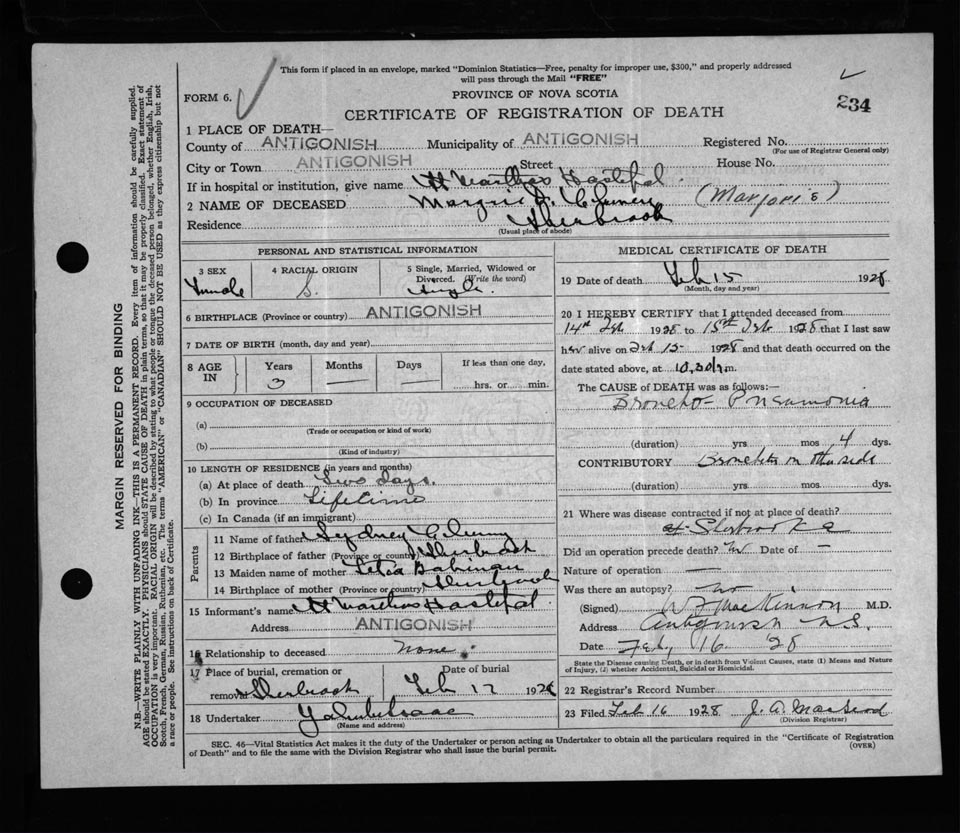 This form if placed in an envelope, marked "Dominion Statistics—Free, penalty for improper use, $300," and properly addressed
will pass through the Mail "FREE"
FORM 6.
PROVINCE OF NOVA SCOTIA
234
CERTIFICATE OF REGISTRATION OF DEATH
1 PLACE OF DEATH—
County of ANTIGONISH Municipality of ANTIGONISH Registered No.
(For use of Registrar General only)
City or Town ANTIGONISH Street House No.
If in hospital or institution, give name St Marthas Hospital
2 NAME OF DECEASED (Marjorie)
Residence Sherbrook
(Usual place of abode)
PERSONAL AND STATISTICAL INFORMATION
3 SEX
Female
4 RACIAL ORIGIN
S.
5 Single, Married, Widowed or Divorced. (Write the word)
Single.
6 BIRTHPLACE (Province or country) ANTIGONISH
7 DATE OF BIRTH (month, day and year)
8 AGE IN
Years
3
Months
—
Days
—
If less than one day,
hrs. or min.
9 OCCUPATION OF DECEASED
(a)
(Trade or occupation or kind of work)
(b)
(Kind of industry)
10 LENGTH OF RESIDENCE (in years and months)
(a) At place of death Two days.
(b) In province Lifetime
(c) In Canada (if an immigrant)
Parents
11 Name of father Sydney
12 Birthplace of father (Province or country) Sherbrook
13 Maiden name of mother
14 Birthplace of mother (Province or country) Sherbrook
15 Informant's name St Marthas Hospital
Address ANTIGONISH
16 Relationship to deceased None
17 Place of burial, cremation or removal Sherbrook
Date of burial
Feb 17 1928
18 Undertaker
(Name and address)
MEDICAL CERTIFICATE OF DEATH
19 Date of death Feb 15 1928
(Month, day and year)
20 I HEREBY CERTIFY that I attended deceased from
14th Feb 1928 to 15th Feb 1928 that I last saw
her alive on Feb 15 1928 and that death occurred on the
date stated above, at 10.30 m.
The CAUSE of DEATH was as follows:—
Broncho Pneumonia
(duration) yrs. mos. 4 dys.
CONTRIBUTORY Bronchitis on other side
(duration) yrs. mos. dys.
21 Where was disease contracted if not at place of death?
at Sherbrooke
Did an operation precede death? No Date of —
Nature of operation —
Was there an autopsy? No
(Signed) MacKinnon M.D.
Address Antigonish N.S.
Date Feb, 16 '28
State the Disease causing Death, or in death from Violent Causes, state (1) Means and Nature
of Injury, (2) whether Accidental, Suicidal or Homicidal.
22 Registrar's Record Number
23 Filed Feb 16 1928 J. A. MacLeod
(Division Registrar)
SEC. 46—Vital Statistics Act makes it the duty of the Undertaker or person acting as Undertaker to obtain all the particulars required in the "Certificate of Registration
of Death" and to file the same with the Division Registrar who shall issue the burial permit.
(OVER)
MARGIN RESERVED FOR BINDING
N.B.—WRITE PLAINLY WITH UNFADING INK—THIS IS A PERMANENT RECORD. Every item of information should be carefully supplied.
AGE should be stated EXACTLY. PHYSICIANS should STATE CAUSE OF DEATH in plain terms, so that it may be properly classified. Exact statement of
OCCUPATION is very important. RACIAL ORIGIN will be described by stating to what people or tongue the deceased person belonged, whether English, Irish,
Scotch, French, German, Russian, Ruthenian, etc. The terms "AMERICAN" or "CANADIAN" SHOULD NOT BE USED as they express citizenship but not
a race or people. See instructions on back of Certificate.